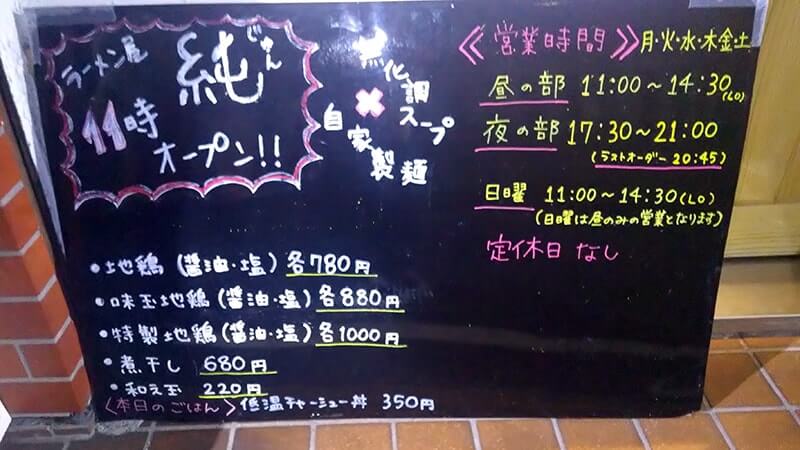 ラーメン屋
純
じゅん
11時
オープン!!
無化調スープ
×
自家製麺
《営業時間》月・火・水・木金・土
昼の部 11:00〜14:30(LO)
夜の部 17:30〜21:00
(ラストオーダー 20:45)
日曜 11:00〜14:30(LO)
(日曜は昼のみの営業となります)
定休日 なし
・地鶏(醤油・塩)各780円
・味玉地鶏(醤油・塩)各880円
・特製地鶏(醤油・塩)各1000円
・煮干し 680円
・和え玉 220円
〈本日のごはん〉低温チャーシュー丼 350円